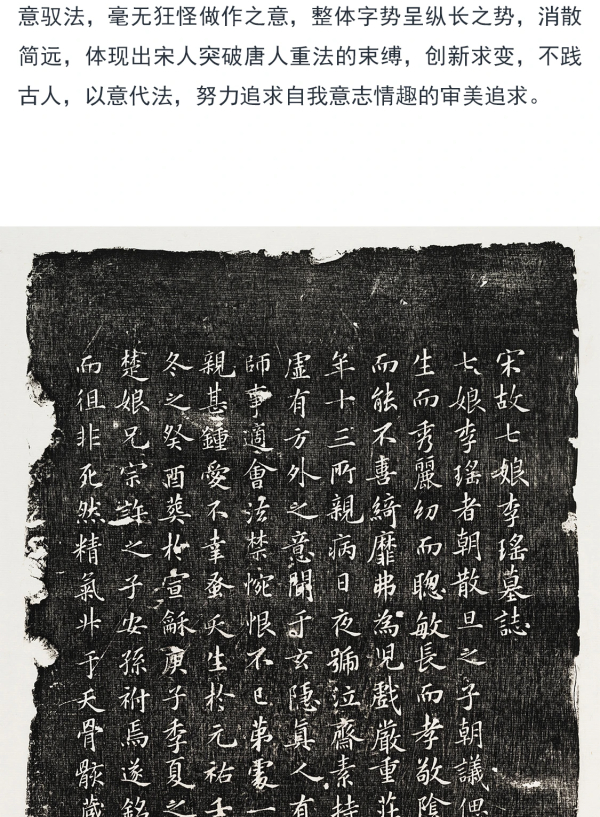 意驭法，毫无狂怪做作之意，整体字势呈纵长之势，消散
简远，体现出宋人突破唐人重法的束缚，创新求变，不践
古人，以意代法，努力追求自我意志情趣的审美追求。
宋故七娘李瑤墓誌
七娘李瑤者朝散旦之子朝議偲
生而秀麗幼而聰敏長而孝敬陰
而能不喜綺靡弗為児戲嚴重莊
年十三所親病日夜號泣齋素持
虛有方外之意聞于玄隱真人有
師事適會法禁惋恨不已第處一
親甚鍾愛不幸蚤夭生於元祐壬
冬之癸酉葬於宣龢庚子季夏之
楚娘兄宗許之子安孫祔焉遂銘
而徂非死然精氣升于天骨骸歲